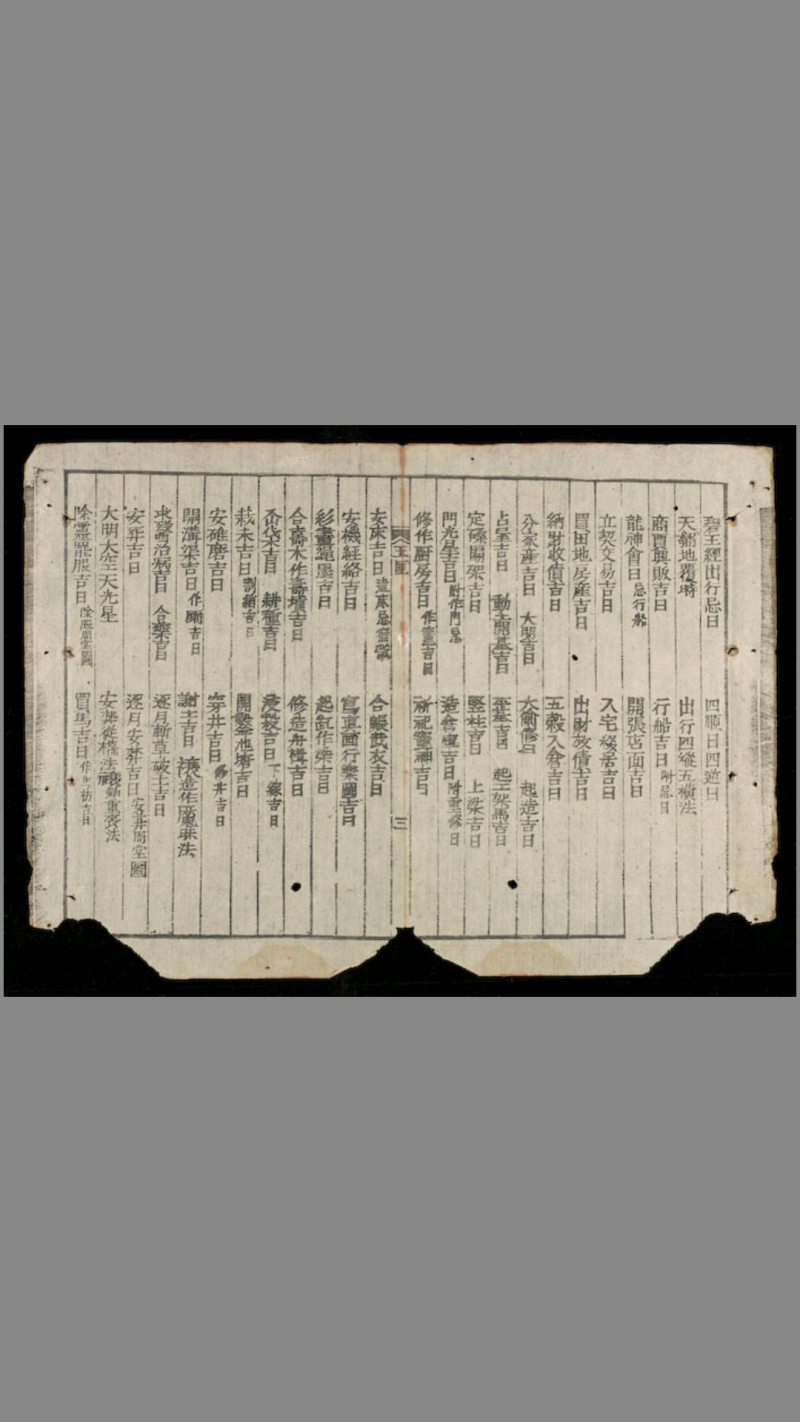 碧玉經出行忌日 四順日四逆日
天翻地覆時 出行四縱五橫法
商賈興販吉日 行船吉日附忌日
龍神會日忌行船 開張店面吉日
立契交易吉日 入宅移居吉日
買田地房產吉日 出財放債吉日
納財收債吉日 五穀入倉吉日
分家產吉日 大吉日 起造吉日
吉日 動土開基吉日 吉日 起工架馬吉日
定磉吉日 豎柱吉日 上梁吉日
門光星吉日附作門忌 造倉吉日
修作厨房吉日作竈吉日 祈祀竈神吉日
三
安床吉日造床忌 合帳裁衣吉日
安機經絡吉日 寫真画行樂圖吉日
彩畫吉日 起缸作染吉日
合壽木作壽墳吉日 修造舟楫吉日
吉日 耕種吉日 吉日
栽禾吉日割吉日 開吉日
安碓磨吉日 穿井吉日修井吉日
開溝渠吉日作厠吉日 謝土吉日 禳造作魘昧法
求醫治病吉日 合藥吉日 逐月斬草破土吉日
安葬吉日 逐月安葬吉日安葬周堂圖
大明大空天光星 安葬從權法重喪法
除靈罷服吉日除服周堂圖 買馬吉日